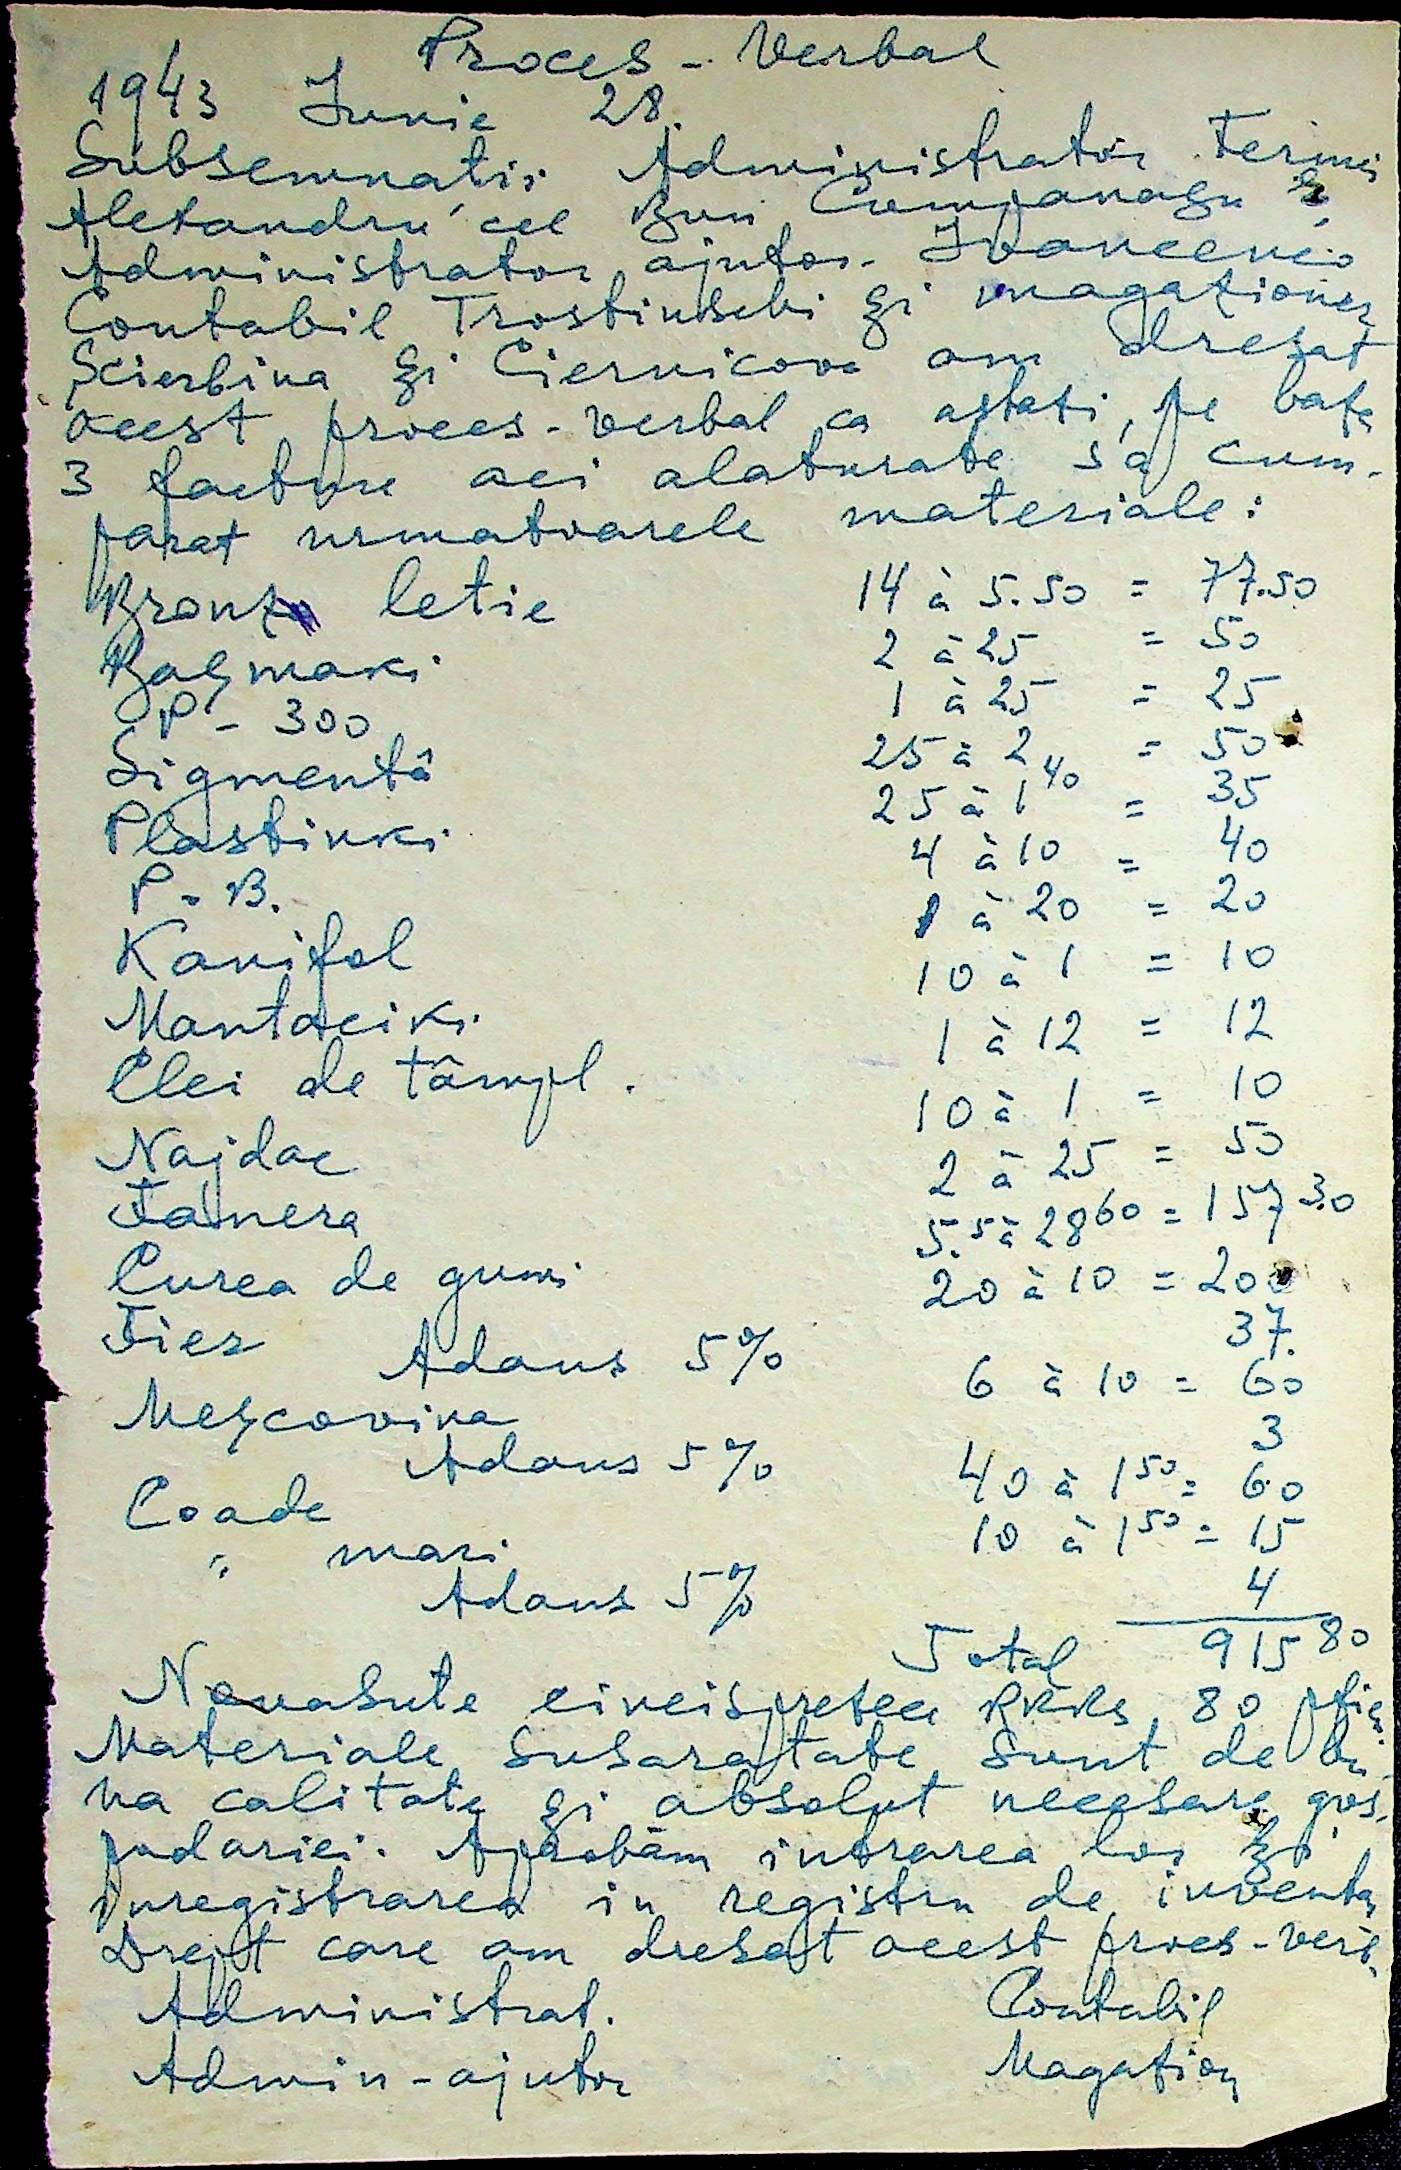 Proces - Verbal
1943 Iunie 28.
Subsemnatii Administrator Fermei
Alexandru cel Bun Companagu
Administrator ajutor Ivancenco
Contabil Trostinschi și magazioner
Scierbina și Ciernicova am drezat
acest proces-verbal ca astazi, pe baza
3 facture aci alaturate s'a cum-
parat urmatoarele materiale:
Bronz letie 14 à 5.50 = 77.50
Bașmaki 2 à 25 = 50
P - 300 1 à 25 = 25
Sigmentă 25 à 2 = 50
Plastinki 25 à 1 40 = 35
P - B. 4 à 10 = 40
Kanifol 1 à 20 = 20
Mantaciki 10 à 1 = 10
Clei de tâmpl. 1 à 12 = 12
Najdac 10 à 1 = 10
Fanera 2 à 25 = 50
Curea de gumi 5.5 à 28 60 = 157 30
Fier 20 à 10 = 200
Adaus 5% 37.
Meșcovina 6 à 10 = 60
Adaus 5% 3
Coade 40 à 1 50 = 60
" mari 10 à 1 50 = 15
Adaus 5% 4
Total 915 80
Nouasute cincisprecee RKKs, 80 pfici
Materiale susaratate sunt de bu-
na calitate și absolut necesare gos-
podariei. Aprobăm intrarea lor și
inregistrarea in registru de inventar
Drept care am dresat acest proces-verb.
Administrat. Contabil
Admin-ajutor Magazioner